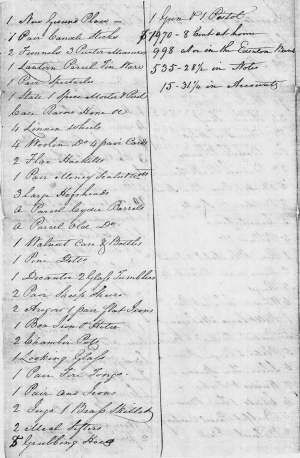 1 New Ground Plow
1 Pair Candle Sticks
2 Funnels 3 Pewter Measures
1 Lantern Parcel Tin Ware
1 Pair Spectacles
1 Slate 1 Spice Morter & Pestl
Case Razors Hone &c
4 Linnen Wheels
4 Woolen Do 4 pair Cards
2 Flax Hackells
1 Pair Money
3 large Hogsheads
a Parcel Cyder Barrels
a Parcel Old Do
1 Walnut Case & Bottles
1 Pine
1 Decanter 2 Glass Tumblers
2 Pair Sheep Shears
2 Augers 1 pair flat Irons
1 Box Iron & Heter
2 Chamber Pots
1 Looking Glass
1 Pair Fire Tongs
1 Pair and Irons
2 Jugs 1 Brass Skillet
2 Meal Sifters
8 Grubbing Hoes
1 Gun & 1 Pistol
$1970-8 Cent at home
998 Do in the Bank
535-28½ in Notes
15-31¼ in Accounts